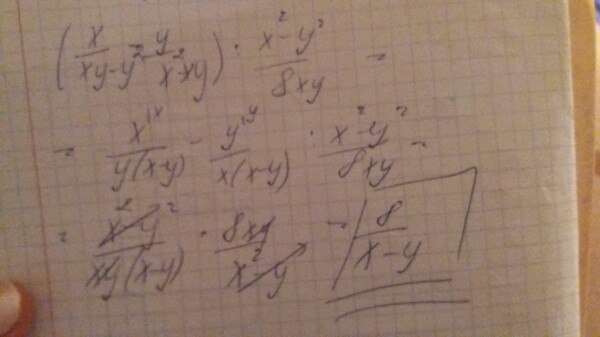 (x/(xy-y²) - y/(x²-xy)) · (x²-y²)/(8xy) =
= x^{1x}/(y(x-y)) - y^{1y}/(x(x-y)) · (x²-y²)/(8xy) =
= (x²-y²)/(xy(x-y)) · (8xy)/(x²-y) = 8/(x-y)